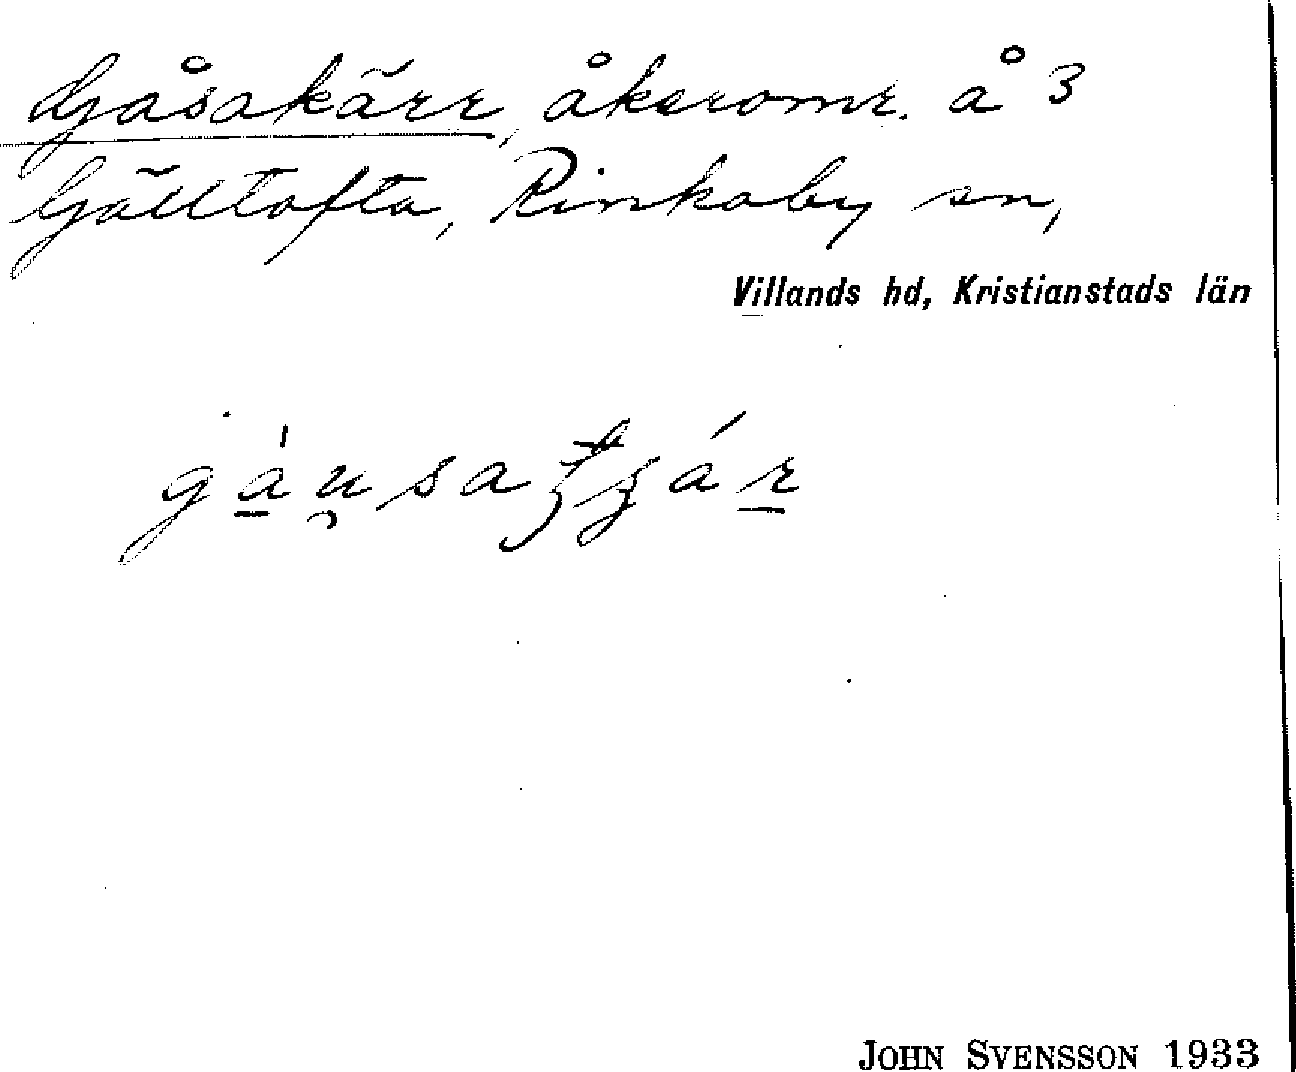 Gåsakärr, åkeromr. å 3
Gälltofta, Rinkaby sn,
Villands hd, Kristianstads län
JOHN SVENSSON 1933